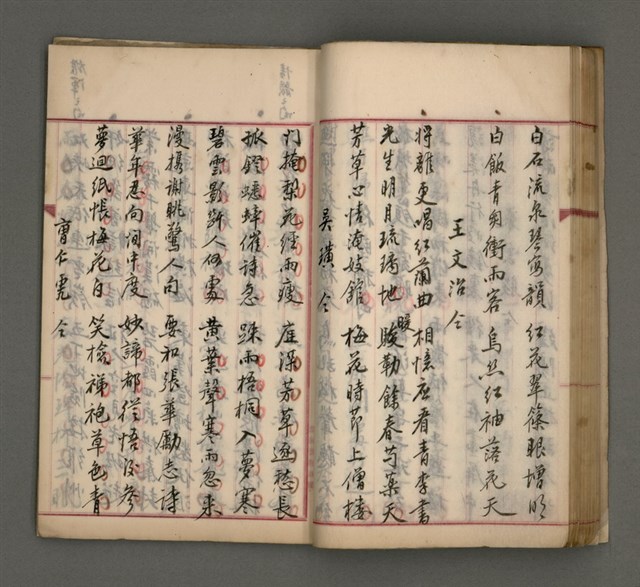 白石流泉琴客韻 紅花翠篠眼增明
白飯青芻衝雨客 烏絲紅袖落花天
王文治 仝
將離更唱紅蘭曲 相憶应看青李書
光生明月琉璃地 暖 勒餘春芍薬天
芳草心情淹妓館 梅花時節上僧樓
吳璜 仝
門掩梨花經雨瘦 庭深芳草逐愁長
孤鐙蟋蟀催詩急 踈雨梧桐入夢寒
碧雲影斷人何處 黃葉聲寒雨忽来
漫携謝眺驚人句 要和張華勵志詩
華年忍向閒中度 妙諦都從悟後參
夢迴紙悵梅花白 笑檢 袍草色青
曹仁虎 仝